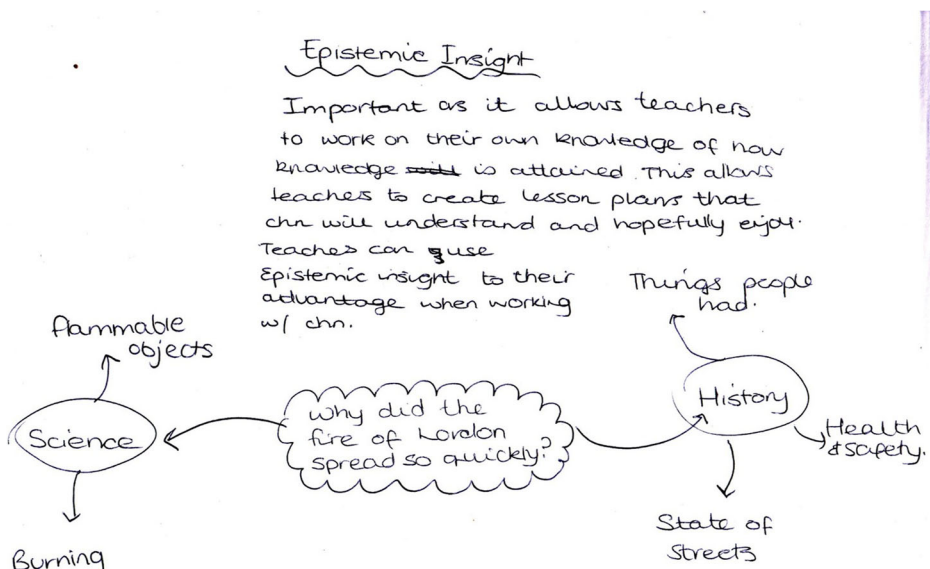 Epistemic Insight
Important as it allows teachers
to work on their own knowledge of how
knowledge is attained. This allows
teachers to create lesson plans that
chn will understand and hopefully enjoy.
Teaches can use
Epistemic insight to their
advantage when working
w/ chn.
Things people
had.
flammable
objects
Why did the
fire of London
spread so quickly?
History
Science
Health
& safety.
State of
streets
Burning